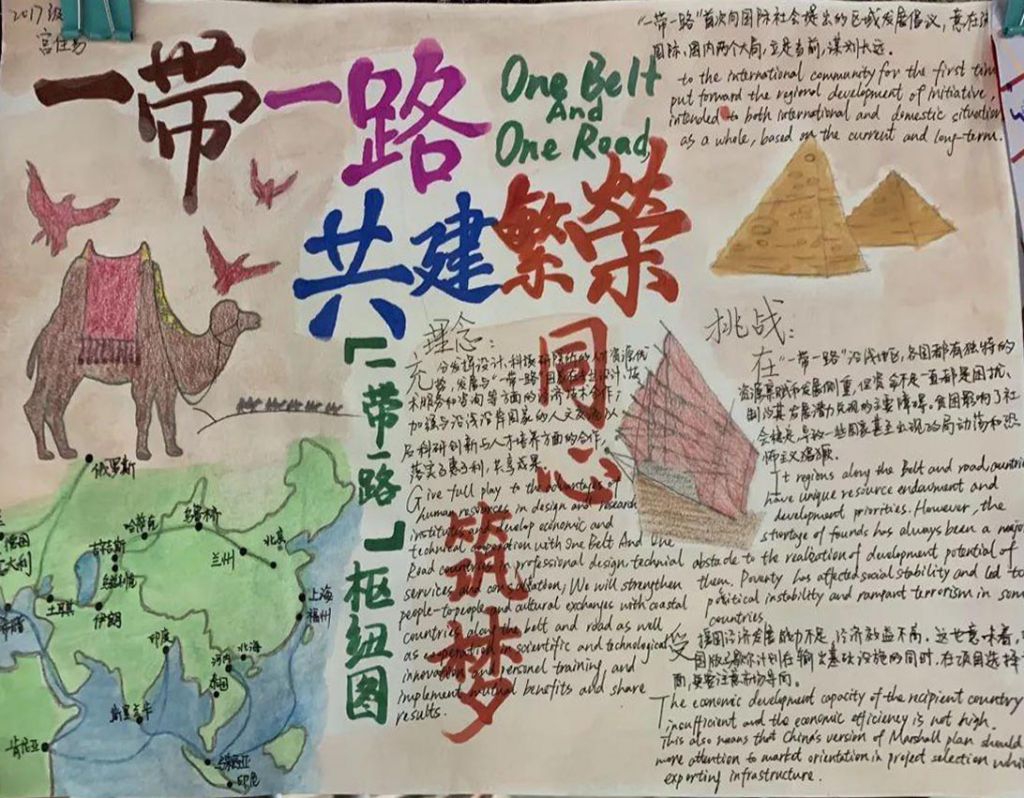 2017级
一带一路
One Belt
And
One Road
共建繁榮
同心
筑梦
"一带一路"首次向国际社会提出的区域发展倡议,意在
国际、国内两个大局,立足当前,谋划长远。
to the international community for the first time
put forward the regional development of initiative,
intended to both international and domestic situation
as a whole, based on the current and long-term.
理念:
充分发挥设计、科技研
势,发展与"一带一路"国家在
术服务和咨询等方面的经济技术合作;
加强与沿线沿岸国家的人文交流以
及科研创新与人才培养方面的合作,
落实互惠互利,共享成果。
Give full play to the advantages of
human resources in design and research
institutes and develop echonic and
technical cooperation with One Belt And One
Road countries in professional design, technical
services and consultation, We will strengthen
people-to-people and cultural exchanges with coastal
countries along the belt and road as well
as cooperation in scientific and technological
innovation and personal training, and
implement mutual benefits and share
results.
「一带一路」枢纽图
挑战:
在"一带一路"沿线地区,各国都有独特的
资源禀赋和发展侧重,但资金不足一直都是困扰、
制约其发展潜力实现的主要障碍。贫困影响了社
会稳定,导致一些国家甚至出现政局动荡和恐
怖主义猖獗。
It regions along the Belt and road, countries
have unique resource endowment and
development priorities. However, the
shortage of founds has always been a major
obstacle to the realization of development potential of
them. Poverty has affected social stability and led to
political instability and rampant terrorism in some
countries.
受援国经济发展能力不足,经济效益不高。这也意味着,
国版马歇尔计划在输出基础设施的同时,在项目选择
面,要注意市场导向。
The ecanomic development capacity of the recipient country
insufficient and the economic efficiency is not high.
This also means that China's version of Marshall plan should
more attention to market orientation in project selection while
exporting infrastructure.
俄罗斯
哈萨克
乌鲁木齐
北京
兰州
德国
意大利
土耳其
伊朗
上海
福州
印度
北海
河内
泰国
斯里兰卡
肯尼亚
马来西亚
印尼